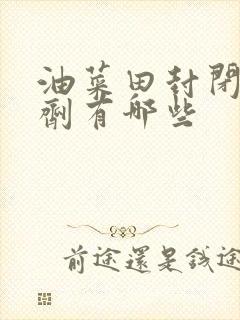 油菜田封闭
剂有哪些
前途還是錢途